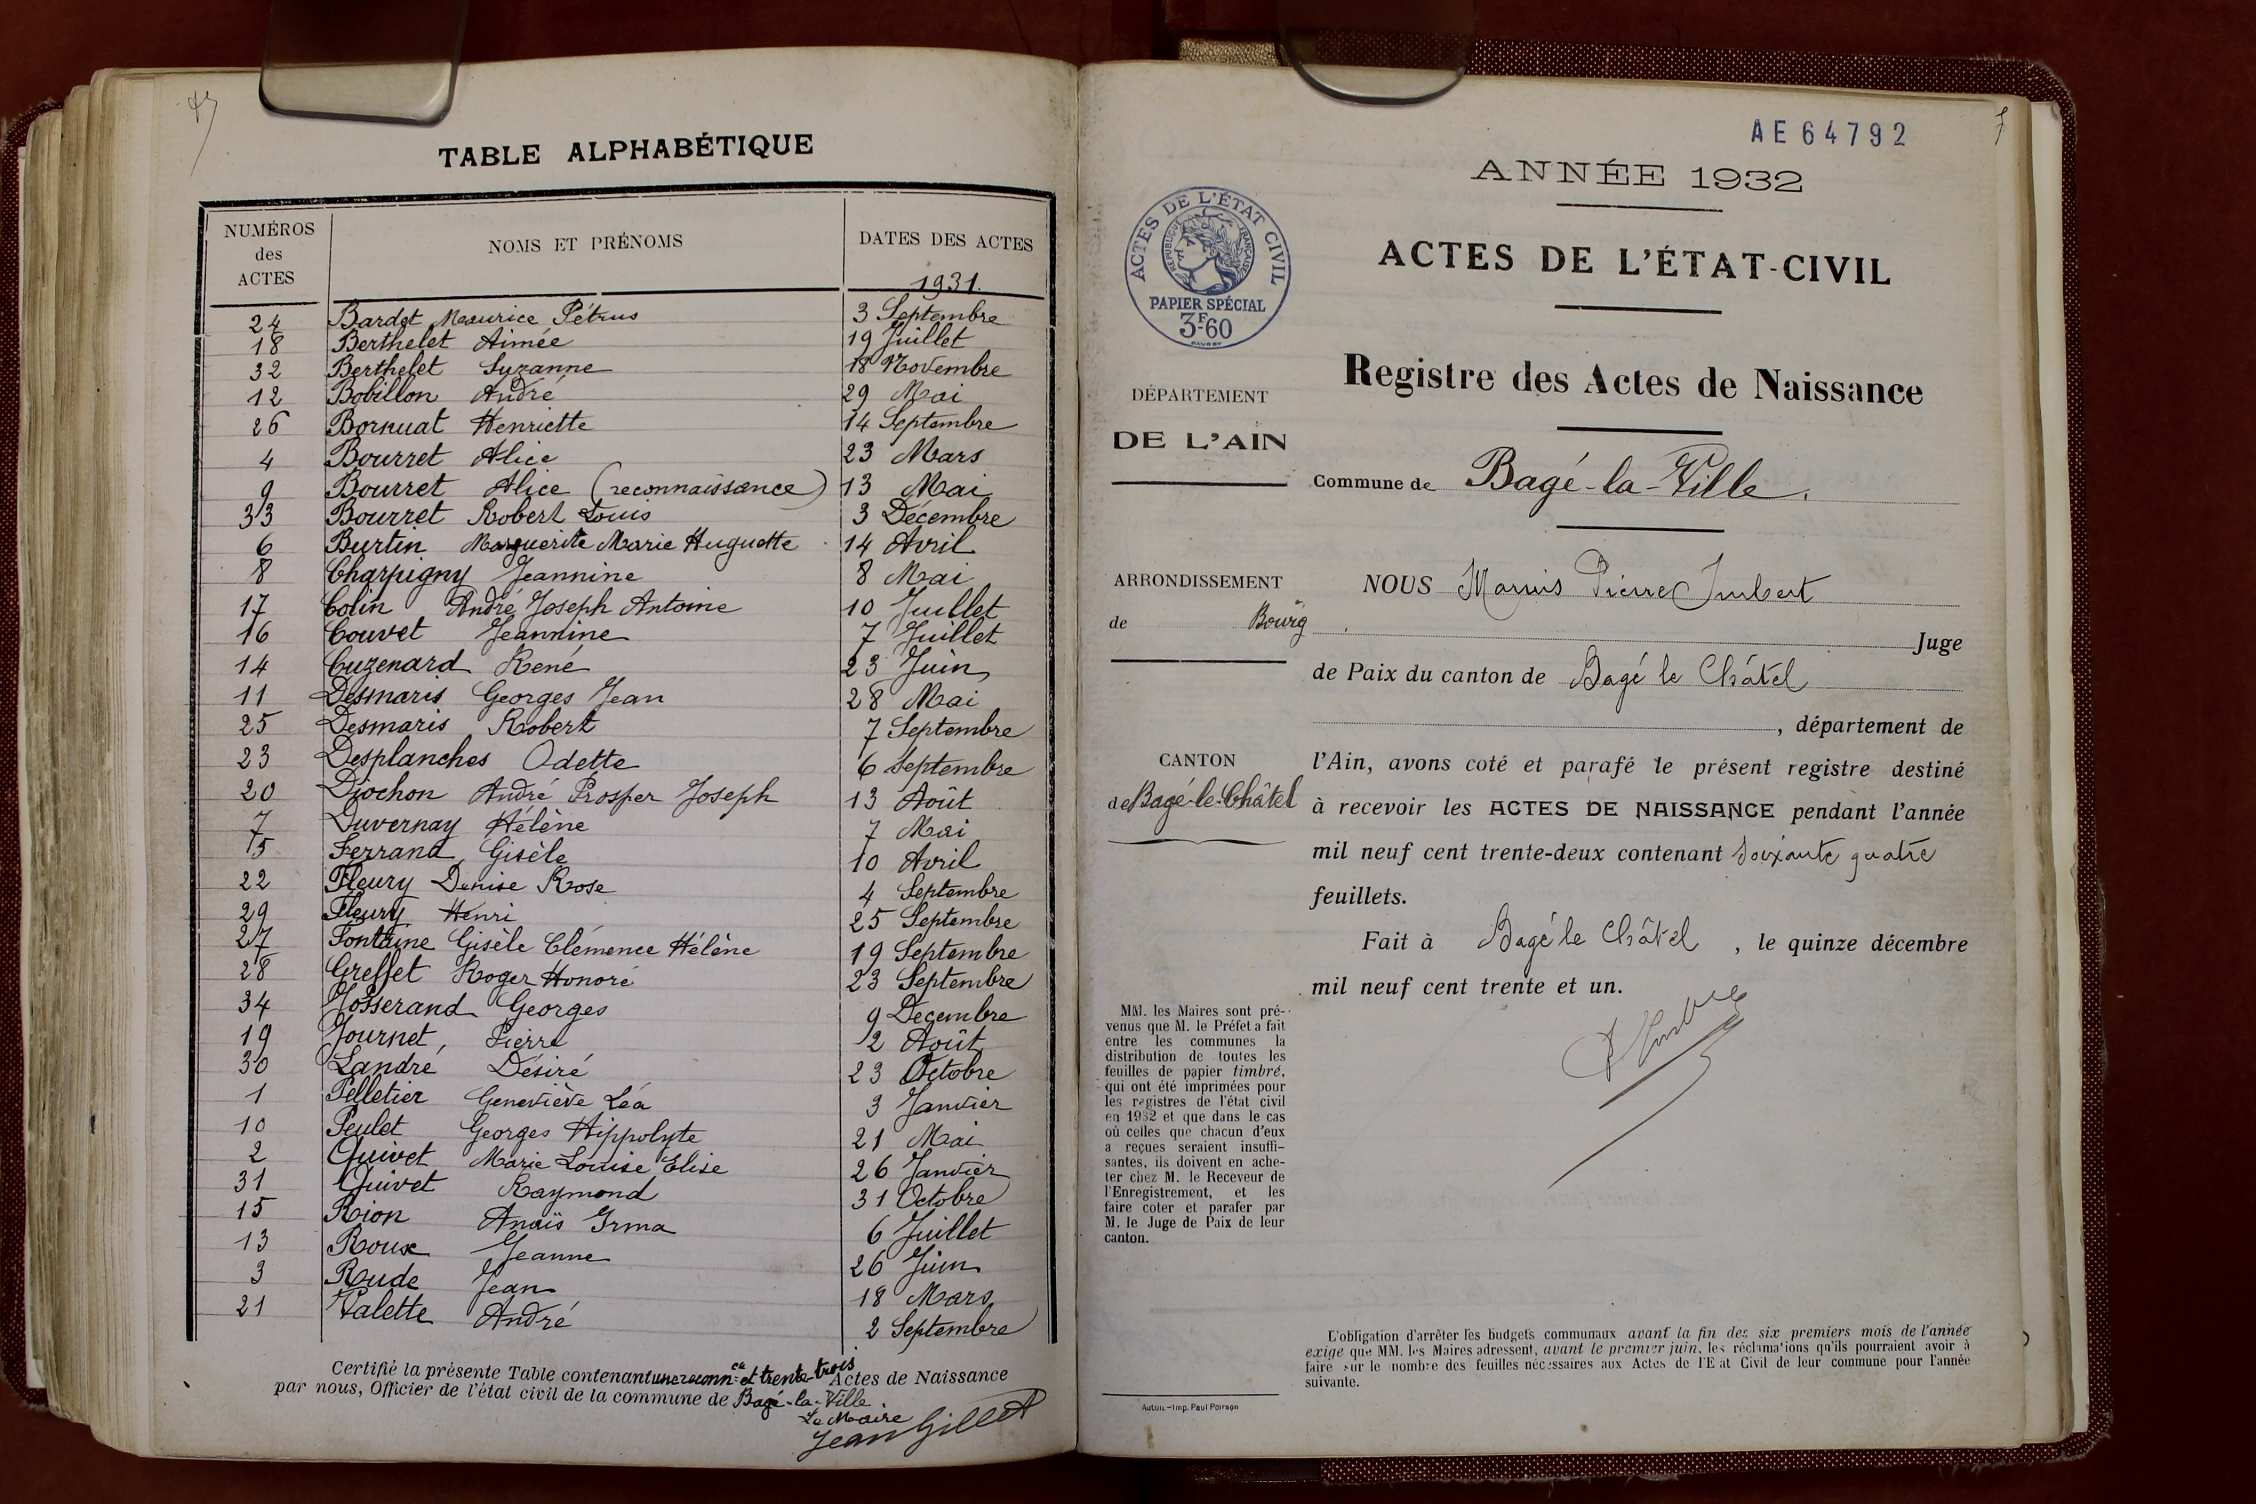 TABLE ALPHABÉTIQUE
NUMÉROS des ACTES
NOMS ET PRÉNOMS
DATES DES ACTES
1931.
24 Bardet Maurice Pétrus 3 Septembre
18 Berthelet Aimée 19 Juillet
32 Berthelet Suzanne 18 Novembre
12 Bobillon André 29 Mai
26 Bornuat Henriette 14 Septembre
4 Bourret Alice 23 Mars
9 Bourret Alice (reconnaissance) 13 Mai
33 Bourret Robert Louis 3 Décembre
6 Burtin Marguerite Marie Huguette 14 Avril
8 Charpigny Jeannine 8 Mai
17 Colin André Joseph Antoine 10 Juillet
16 Couvet Jeannine 7 Juillet
14 Cuzenard René 23 Juin
11 Desmaris Georges Jean 28 Mai
25 Desmaris Robert 7 Septembre
23 Desplanches Odette 6 Septembre
20 Diochon André Prosper Joseph 13 Août
7 Duvernay Hélène 7 Mai
5 Ferrand Gisèle 10 Avril
22 Fleury Denise Rose 4 Septembre
29 Fleury Henri 25 Septembre
27 Fontaine Gisèle Clémence Hélène 19 Septembre
28 Greffet Roger Honoré 23 Septembre
34 Josserand Georges 9 Décembre
19 Journet Pierre 2 Août
30 Landré Désiré 23 Octobre
1 Pelletier Geneviève Léa 3 Janvier
10 Peulet Georges Hippolyte 21 Mai
2 Quivet Marie Louise Elise 26 Janvier
31 Quivet Raymond 31 Octobre
15 Rion Anaïs Irma 6 Juillet
13 Roux Jeanne 26 Juin
3 Rude Jean 18 Mars
21 Valette André 2 Septembre
Certifié la présente Table contenant une reconn.ce et trente-trois Actes de Naissance
par nous, Officier de l'état civil de la commune de Bagé-la-Ville
Le Maire
Jean Gillet
AE64792
ANNÉE 1932
ACTES DE L'ÉTAT CIVIL
RÉPUBLIQUE FRANÇAISE
PAPIER SPÉCIAL
3F-60
ACTES DE L'ÉTAT-CIVIL
Registre des Actes de Naissance
DÉPARTEMENT
DE L'AIN
Commune de Bagé-la-Ville.
ARRONDISSEMENT
de Bourg
CANTON
de Bagé-le-Châtel
NOUS Marius Pierre Imbert
Juge
de Paix du canton de Bagé le Châtel
, département de
l'Ain, avons coté et parafé le présent registre destiné
à recevoir les ACTES DE NAISSANCE pendant l'année
mil neuf cent trente-deux contenant soixante quatre
feuillets.
Fait à Bagé le Châtel, le quinze décembre
mil neuf cent trente et un.
MM. les Maires sont pré-
venus que M. le Préfet a fait
entre les communes la
distribution de toutes les
feuilles de papier timbré,
qui ont été imprimées pour
les registres de l'état civil
en 1932 et que dans le cas
où celles que chacun d'eux
a reçues seraient insuffi-
santes, ils doivent en ache-
ter chez M. le Receveur de
l'Enregistrement, et les
faire coter et parafer par
M. le Juge de Paix de leur
canton.
L'obligation d'arrêter les budgets communaux avant la fin des six premiers mois de l'année
exige que MM. les Maires adressent, avant le premier juin, les réclamations qu'ils pourraient avoir à
faire sur le nombre des feuilles nécessaires aux Actes de l'Etat Civil de leur commune pour l'année
suivante.
Autun.-Imp. Paul Poirson